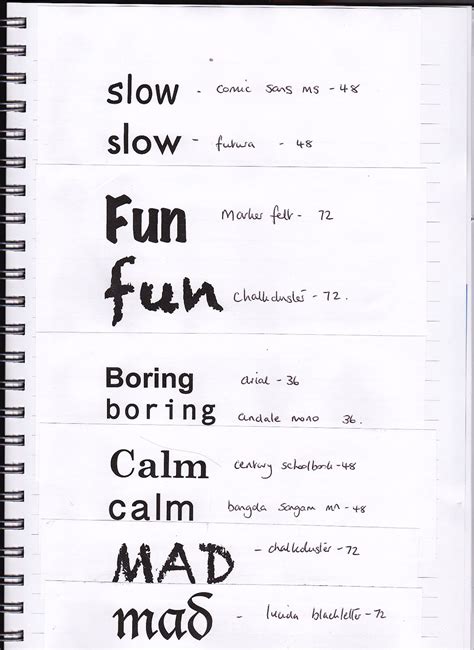 slow - comic sans ms - 48
slow - futura - 48
Fun Marker felt - 72
fun chalkduster - 72.
Boring arial - 36
boring andale mono 36.
Calm century schoolbook - 48
calm bangla sangam mn - 48
MAD - chalkduster - 72
mad - lucida blackletter - 72